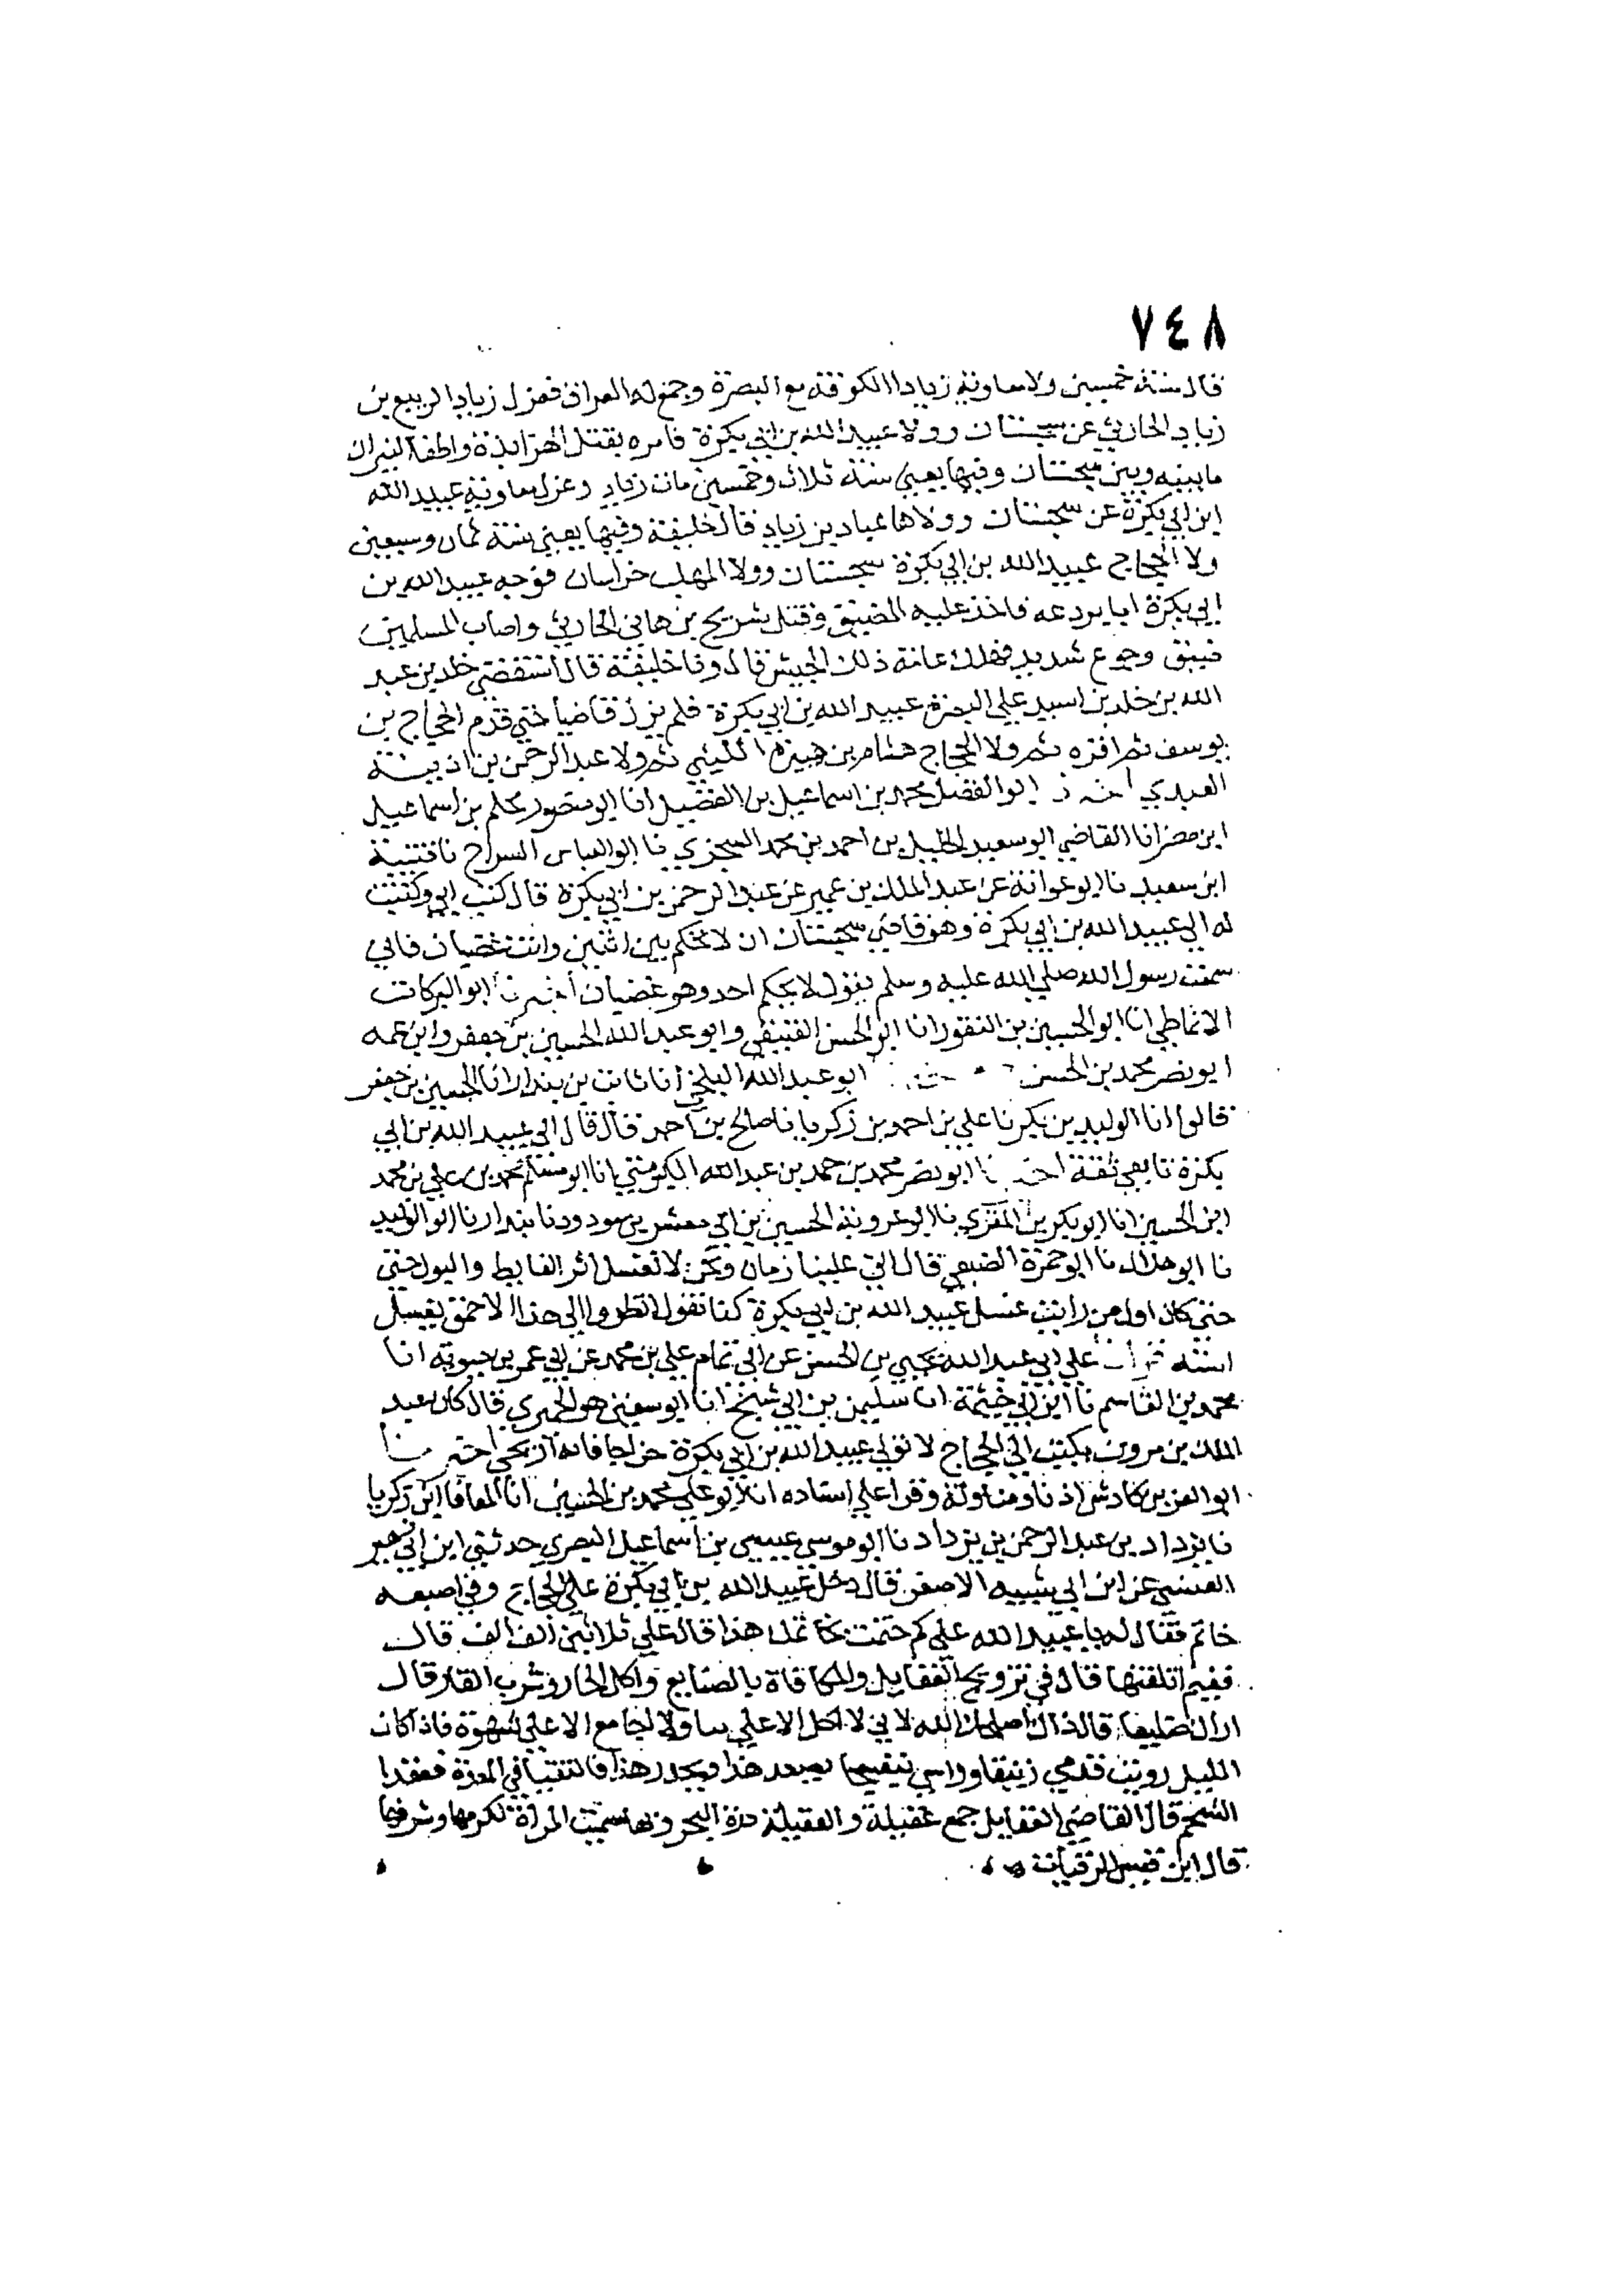 ٧٤٨
قال سنة خمسين ولا معاوية زيادا الكوفة مع البصرة وجمع له العراق فعزل زياد الربيع بن
زياد الحارثي عن سجستان وولا عبيد الله بن ابي بكرة فامره بقتل الهرابذة واطفا النيران
ما بينه وبين سجستان وفيها يعني سنة ثلاث وخمسين مات زياد وعزل معاوية عبيد الله
ابن ابي بكرة عن سجستان وولاها عباد بن زياد قال خليفة وفيها يعني سنة ثمان وسبعين
ولا الحجاج عبيد الله بن ابي بكرة سجستان وولا المهلب خراسان فوجه عبيد الله بن
ابي بكرة ابا بردعه فاخذ عليه المضيق وقتل شريح بن هاني الحارثي واصاب المسلمين
ضيق وجوع شديد فهلك عامة ذلك الجيش قال ونا خليفة قال استقضى خلد بن عبد
الله بن خلد بن اسيد علي البصرة عبيد الله بن ابي بكرة فلم يزل قاضيا حتي قدم الحجاج بن
يوسف ثم اقره ثم ولا الحجاج هشام بن هبيرة الليثي ثم ولا عبد الرحمن بن اذينة
العبدي ابو الفضل محمد بن اسماعيل بن الفضيل انا ابو منصور محلم بن اسماعيل
ابن مضر انا القاضي ابو سعيد الخليل بن احمد بن محمد السجزي نا ابو العباس السراج نا قتيبة
ابن سعيد نا ابو عوانة عن عبد الملك بن عمير عن عبد الرحمن بن ابي بكرة قال كتب ابي وكتبت
له الي عبيد الله بن ابي بكرة وهو قاضي سجستان ان لا تحكم بين اثنين وانت غضبان فاني
سمعت رسول الله صلي الله عليه وسلم يقول لا يحكم احد وهو غضبان اخبرنا ابو البركات
الانماطي انا ابو الحسين بن النقور انا ابو الحسن العتيقي وابو عبد الله الحسين بن جعفر وابن عمه
ابو نصر محمد بن الحسن ابو عبد الله البلخي انا ثابت بن بندار انا الحسين بن جعفر
قالوا انا الوليد بن بكر نا علي بن احمد بن زكريا نا صالح بن احمد قال قال ابي عبيد الله بن ابي
بكرة تابعي ثقة ابو نصر محمد بن حمد بن عبد الله الكبريتي انا ابو مسلم محمد بن علي بن محمد
ابن الحسين انا ابو بكر بن المقري نا ابو عروبة الحسين بن ابي معشر بن مودود نا بندار نا ابو الوليد
نا ابو هلال نا ابو حمزة الضبعي قال اتي علينا زمان ونحن لا نغسل اثر الغايط والبول حتي
حتي كان اول من رايت غسل عبيد الله بن ابي بكرة كنا نقول انظروا الي هذا الاحمق يغسل
استه علي ابي عبد الله يحيي بن الحسن عن ابي تمام علي بن محمد عن ابي عمر بن حيويه انا
محمد بن القاسم نا ابن ابي خيثمة انا سليمن بن ابي شيخ انا ابو سفين هو الحميري قال كان عبد
الملك بن مرون يكتب الي الحجاج لا تولي عبيد الله بن ابي بكرة
ابو العز بن كادش اذنا ومناولة وقرا علي اسناده انا ابو علي محمد بن الحسين انا المعافا بن زكريا
نا يزداد بن عبد الرحمن بن يزداد نا ابو موسي عيسي بن اسماعيل البصري حدثني ابن ابي
عن ابن ابي شيبه الاصغر قال دخل عبيد الله بن ابي بكرة علي الحجاج وفي اصبعه
خاتم فقال له يا عبيد الله علي كم ختمت بخاتمك هذا قال علي ثلاثين الف الف قال
ففيم اتلفتها قال في تزويج العقايل والمكافاة بالصنايع واكل الحار وشرب القار قال
اراك ضليعا قال ذاك اصلحك الله لاني لا اكل الا علي ولا اجامع الا علي شهوة فاذا كان
الليل رويت قدمي زنبقا وراسي بنفسجا يصعد هذا ويحدر هذا فالتقيا في المعدة فعقدا
الشحم قال القاضي العقايل جمع عقيلة والعقيلة درة البحر وبها سميت المراة لكرمها وشرفها
قال ابن قيس الرقيات